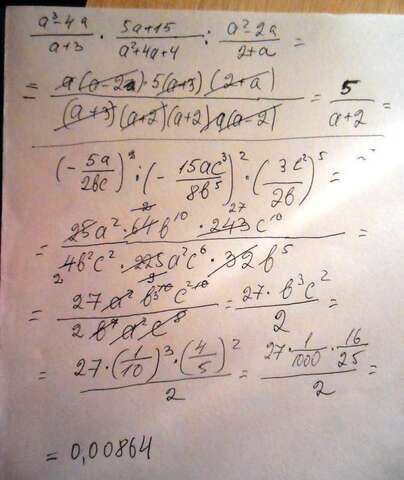 (a³-4a)/(a+3) · (5a+15)/(a²+4a+4) : (a²-2a)/(2+a) =
= (a(a-2a)·5(a+3)(2+a))/((a+3)(a+2)(a+2)a(a-2)) = 5/(a+2) =
(-5a/2bc)² : (-15ac³/8b⁵)² · (3c²/2b)⁵ =
= (25a²·64b¹⁰·243c¹⁰)/(4b²c²·225a²c⁶·32b⁵) =
= (27a²b¹⁰c¹⁰)/(2b⁷a²c⁸) = (27·b³c²)/2 =
= (27·(1/10)³·(4/5)²)/2 = (27·1/1000·16/25)/2 =
= 0,00864